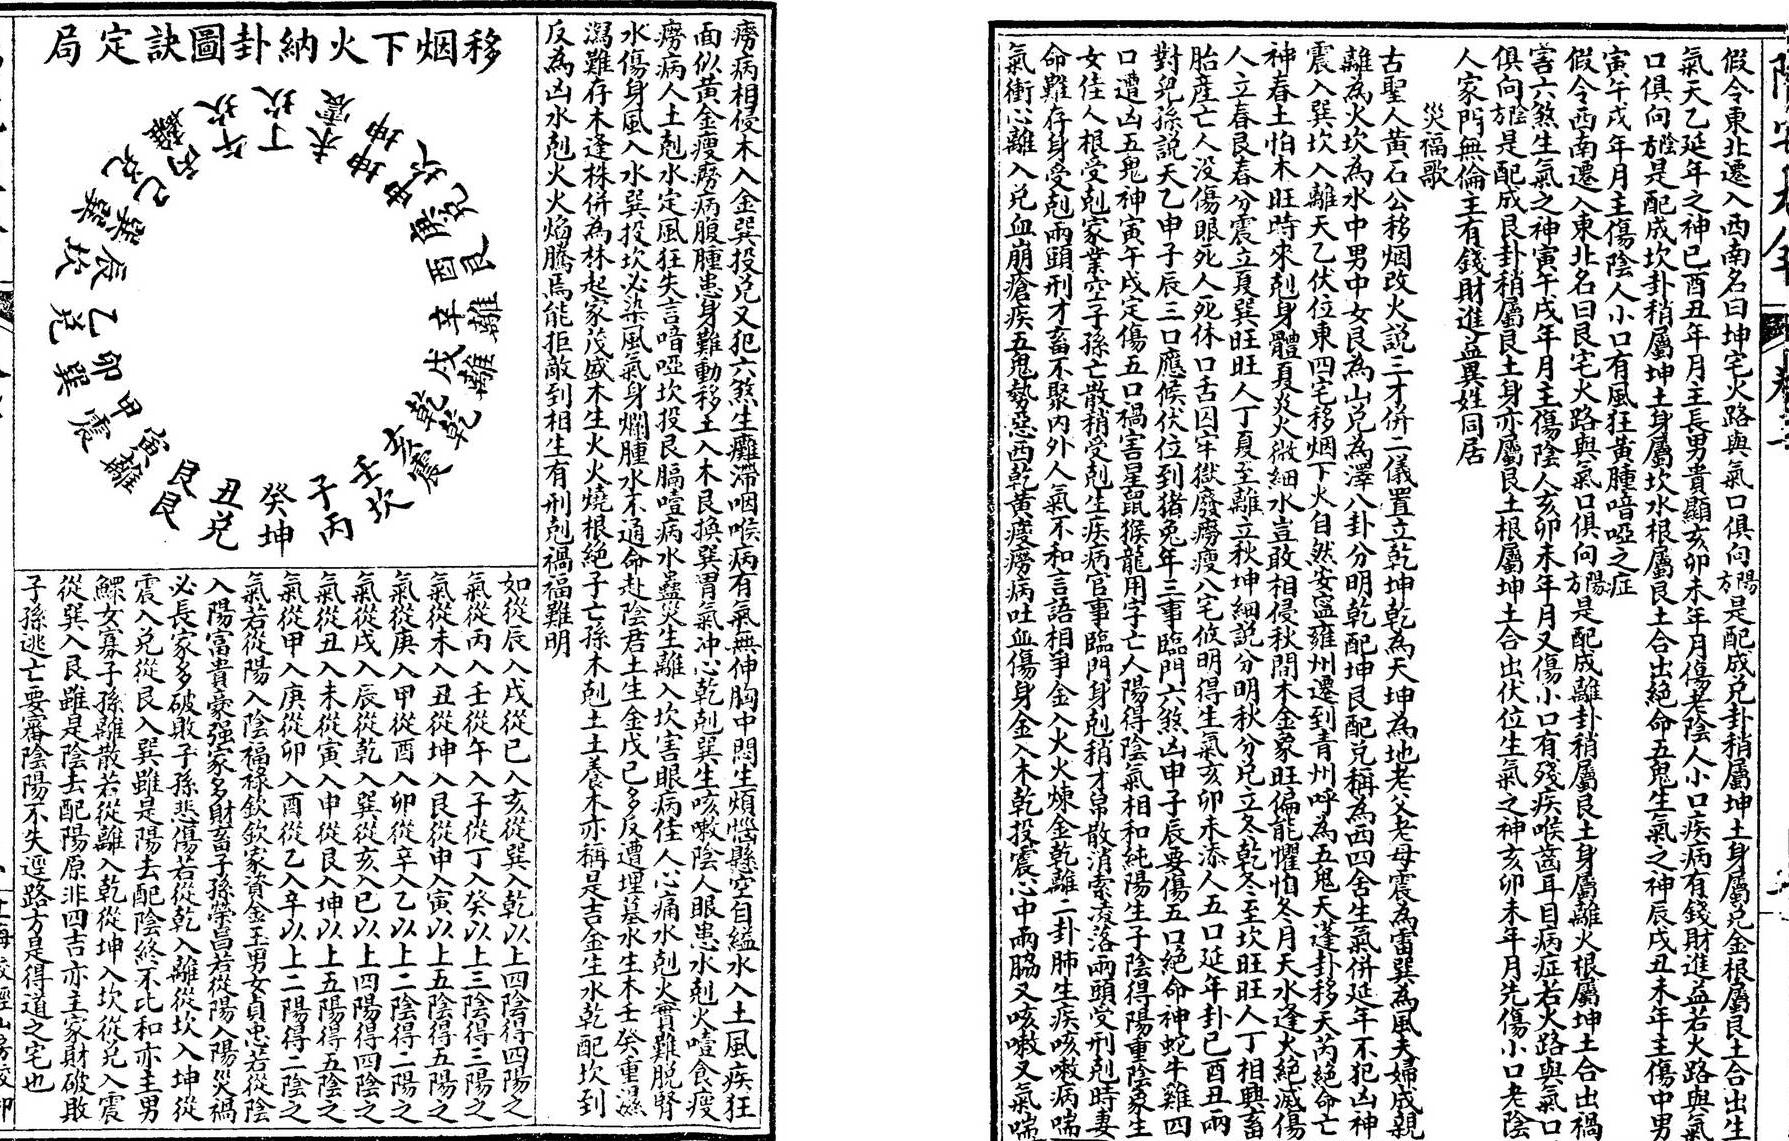 假令東北遷入西南名曰坤宅火路與氣口俱向陽方是配成兌卦稍屬坤土身屬兌金根屬艮土合出生
氣天乙延年之神巳酉丑年月主長男貴顯亥卯未年月傷老陰人小口疾病有錢財進益若火路與氣
口俱向陰方是配成坎卦稍屬坤土身屬坎水根屬艮土合出絕命五鬼生氣之神辰戌丑未年主傷中男
寅午戌年月主傷陰人小口有風狂黃腫喑啞之症
假令西南遷入東北名曰艮宅火路與氣口俱向陽方是配成離卦稍屬艮土身屬離火根屬坤土合出禍
害六煞生氣之神寅午戌年月主傷陰人亥卯未年月又傷小口有殘疾喉齒耳目病症若火路與氣口
俱向陰方是配成艮卦稍屬艮土身亦屬艮土根屬坤土合出伏位生氣之神亥卯未年月先傷小口老陰
人家門無倫主有錢財進益異姓同居
災福歌
古聖人黃石公移烟改火說三才併二儀置立乾坤乾為天坤為地老父老母震為雷巽為風夫婦成親
離為火坎為水中男中女艮為山兌為澤八卦分明乾配坤艮配兌稱為西四舍生氣併延年不犯凶神
震入巽坎入離天乙伏位東四宅移烟下火自然安寧雍州遷到青州呼為五鬼天蓬卦移天芮絕命亡
神春土怕木旺時來剋身體夏炎火微細水豈敢相侵秋間木金象旺偏能懼怕冬月天水逢火絕滅傷
人立春艮春分震立夏巽旺旺人丁夏至離立秋坤細說分明秋分兌立冬乾冬至坎旺旺人丁相興畜
胎產亡人没傷眼死人死休口舌囚牢獄廢癆瘦八宅攸明得生氣亥卯未添人五口延年卦巳酉丑兩
對兒孫說天乙申子辰三口應候伏位到猪兔年三事臨門六煞凶申子辰要傷五口絕命神蛇牛雞四
口遭凶五鬼神寅午戌定傷五口禍害星鼠猴龍用字亡人陽得陰氣相和純陽生子陰得陽重陰象生
女佳人根受剋家業空子孫亡散稍受剋生疾病官事臨門身剋稍才帛散消索凌落兩頭受刑剋時妻
命難存身受剋兩頭刑才畜不聚內外人氣不和言語相爭金入火火煉金乾離二卦肺生疾咳嗽病喘
氣衝心離入兌血崩瘡疾五鬼勢惡西乾黃瘦癆病吐血傷身金入木乾投震心中兩脇又咳嗽又氣喘
癆病相侵木入金巽投兌又犯六煞生癱滯咽喉病有氣無伸胸中悶生煩惱懸空自縊水入土風疾狂
面似黃金瘦癆病腹腫患身難動移土入木艮換巽胃氣冲心乾剋巽生咳嗽陰人眼患水剋火噎食瘦
癆病人土剋水定風狂失言喑啞坎投艮膈噎病水蠱災生離入坎害眼病佳人心痛水剋火實難脱腎
水傷身風入水巽投坎必染風氣身爛腫水不通命赴陰君土生金戊己多反遭埋墓水生木壬癸重濕
瀉難存木逢株併為林起家茂盛木生火火燒根絕子亡孫木剋土土養木亦稱是吉金生水乾配坎到
反為凶水剋火火焰騰焉能拒敵到相生有刑剋禍福難明
移烟下火納卦圖訣定局
丁坎
未震
坤坤
申坎
庚兌
酉艮
辛離
戌離
乾乾
亥震
壬坎
子丙
癸坤
丑兌
艮艮
寅離
甲震
卯巽
乙兌
辰坎
巽巽
巳兌
丙離
午坎
如從辰入戌從巳入亥從巽入乾以上四陰得四陽之
氣從丙入壬從午入子從丁入癸以上三陰得三陽之
氣從未入丑從坤入艮從申入寅以上五陰得五陽之
氣從庚入甲從酉入卯從辛入乙以上二陰得二陽之
氣從戌入辰從乾入巽從亥入巳以上四陽得四陰之
氣從丑入未從寅入申從艮入坤以上五陽得五陰之
氣從甲入庚從卯入酉從乙入辛以上二陽得二陰之
氣若從陽入陰福祿欽欽家資金玉男女貞忠若從陰
入陽富貴豪强家多財畜子孫榮昌若從陽入陽災禍
必長家多破敗子孫悲傷若從乾入離從坎入坤從
震入兌從艮入巽雖是陽去配陰終不比和亦主男
鰥女寡子孫離散若從離入乾從坤入坎從兌入震
從巽入艮雖是陰去配陽原非四吉亦主家財破敗
子孫逃亡要審陰陽不失逕路方是得道之宅也